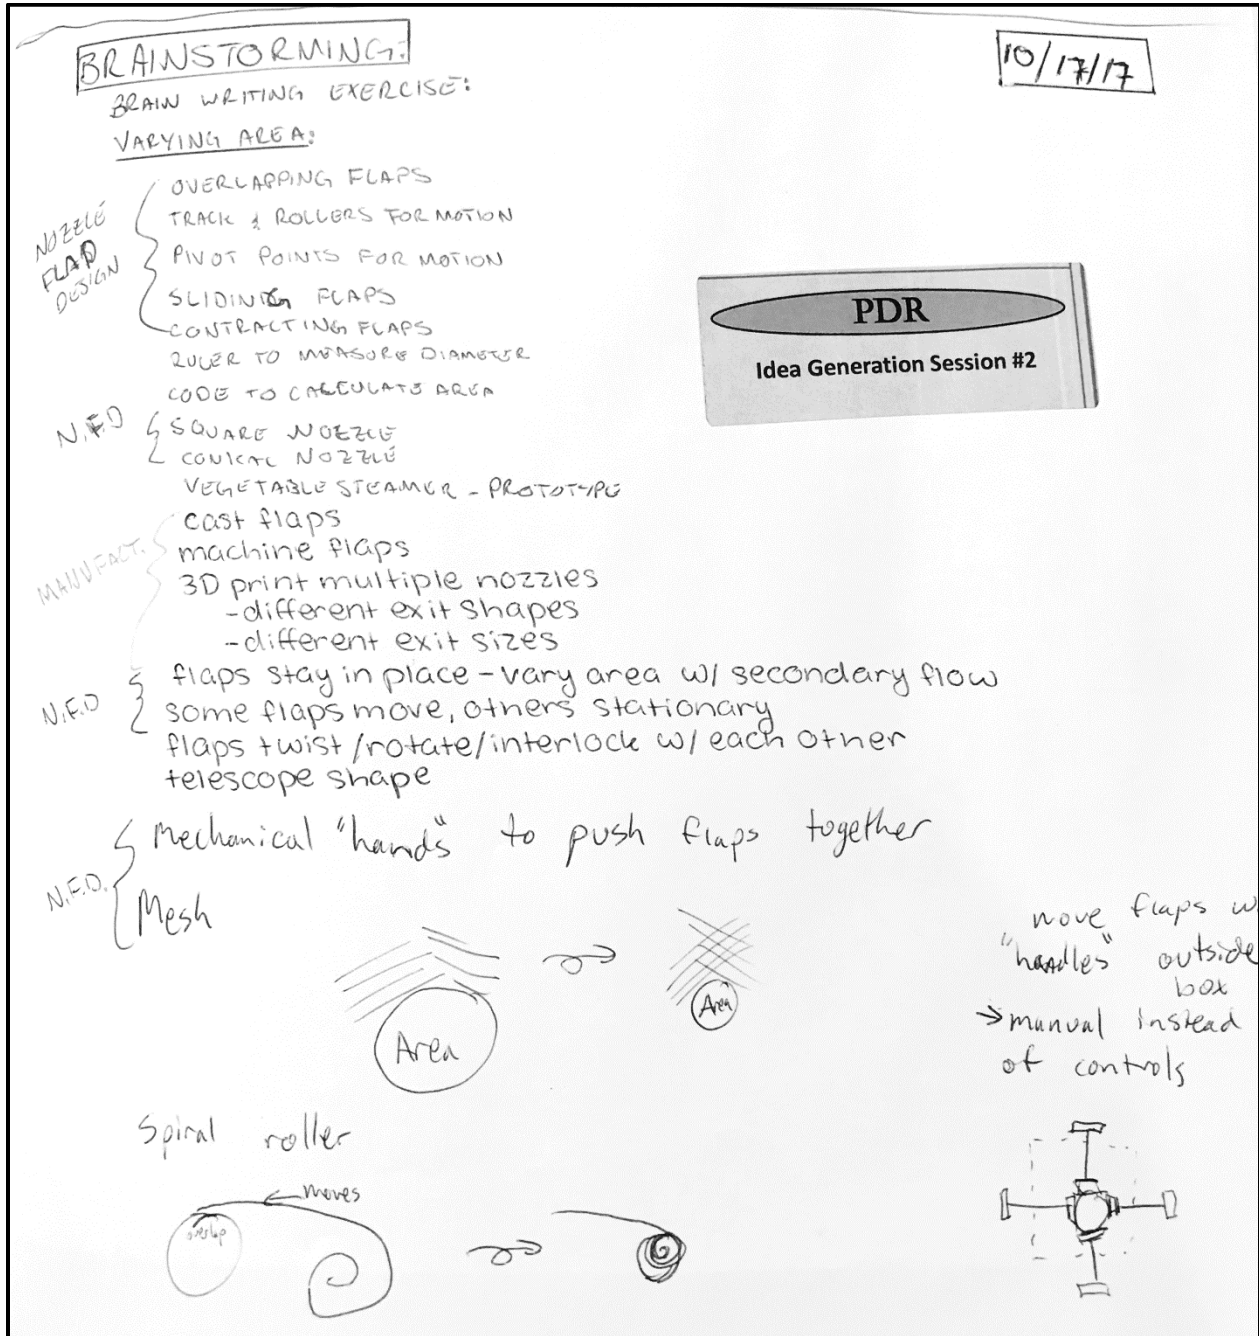 BRAINSTORMING:
10/17/17
BRAIN WRITING EXERCISE:
VARYING AREA:
NOZZLE
FLAP
DESIGN
OVERLAPPING FLAPS
TRACK & ROLLERS FOR MOTION
PIVOT POINTS FOR MOTION
SLIDING FLAPS
CONTRACTING FLAPS
RULER TO MEASURE DIAMETER
CODE TO CALCULATE AREA
PDR
Idea Generation Session #2
N.F.D
SQUARE NOZZLE
CONICAL NOZZLE
VEGETABLE STEAMER - PROTOTYPE
MANUFACT.
cast flaps
machine flaps
3D print multiple nozzles
-different exit shapes
-different exit sizes
N.F.D
flaps stay in place - vary area w/ secondary flow
some flaps move, others stationary
flaps twist/rotate/interlock w/ each other
telescope shape
N.F.D.
Mechanical "hands" to push flaps together
Mesh
Area
Area
move flaps w
"handles" outside
box
→ manual instead
of controls
Spiral roller
overlap
moves